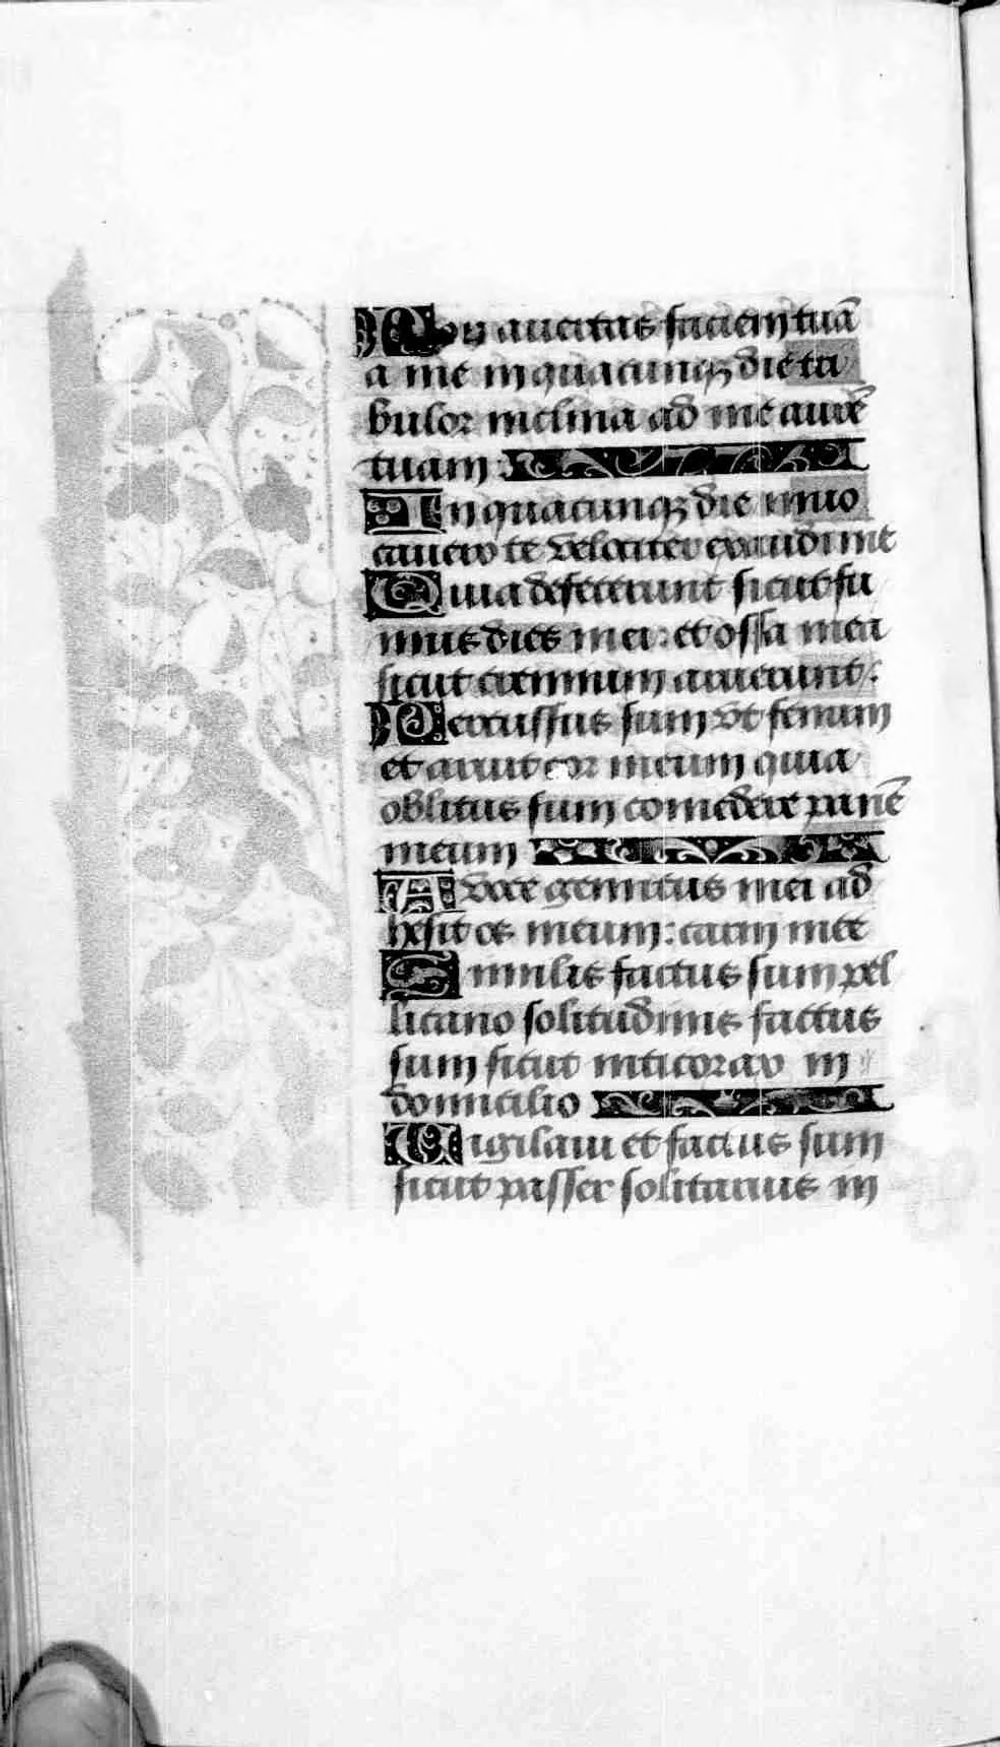 Non auertas faciem tuā
a me in quacunqꝫ die tri
bulor inclina ad me aurē
tuam :
In quacunqꝫ die inuo
cauero te velociter exaudi me
Quia defecerunt sicut fu
mus dies mei : et ossa mea
sicut cremium aruerunt :
Percussus sum vt fenum
et aruit cor meum quia
oblitus sum comedere panē
meum
A voce gemitus mei ad
hesit os meum : carni mee
Similis factus sum pel
licano solitudinis factus
sum sicut nicticorax in
domicilio
Vigilaui et factus sum
sicut passer solitarius in